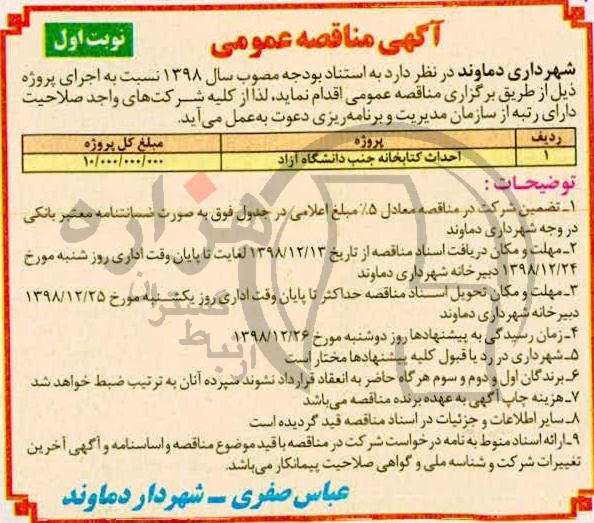 آگهی مناقصه عمومی
نوبت اول
شهرداری دماوند در نظر دارد به استناد بودجه مصوب سال ۱۳۹۸ نسبت به اجرای پروژه
ذیل از طریق برگزاری مناقصه عمومی اقدام نماید، لذا از کلیه شرکت‌های واجد صلاحیت
دارای رتبه از سازمان مدیریت و برنامه‌ریزی دعوت به‌عمل می‌آید.
ردیف پروژه مبلغ کل پروژه
۱ احداث کتابخانه جنب دانشگاه آزاد ۱۰/۰۰۰/۰۰۰/۰۰۰
توضیحات :
۱ـ تضمین شرکت در مناقصه معادل ۵٪ مبلغ اعلامی در جدول فوق به صورت ضمانتنامه معتبر بانکی
در وجه شهرداری دماوند
۲ـ مهلت و مکان دریافت اسناد مناقصه از تاریخ ۱۳۹۸/۱۲/۱۳ لغایت تا پایان وقت اداری روز شنبه مورخ
۱۳۹۸/۱۲/۲۴ دبیرخانه شهرداری دماوند
۳ـ مهلت و مکان تحویل اسناد مناقصه حداکثر تا پایان وقت اداری روز یکشنبه مورخ ۱۳۹۸/۱۲/۲۵
دبیرخانه شهرداری دماوند
۴ـ زمان رسیدگی به پیشنهادها روز دوشنبه مورخ ۱۳۹۸/۱۲/۲۶
۵ـ شهرداری در رد یا قبول کلیه پیشنهادها مختار است
۶ـ برندگان اول و دوم و سوم هرگاه حاضر به انعقاد قرارداد نشوند سپرده آنان به ترتیب ضبط خواهد شد
۷ـ هزینه چاپ آگهی به عهده برنده مناقصه می‌باشد
۸ـ سایر اطلاعات و جزئیات در اسناد مناقصه قید گردیده است
۹ـ ارائه اسناد منوط به نامه درخواست شرکت در مناقصه با قید موضوع مناقصه و اساسنامه و آگهی آخرین
تغییرات شرکت و شناسه ملی و گواهی صلاحیت پیمانکار می‌باشد.
عباس صفری ـ شهردار دماوند
هزاره
گستران
ارتباط